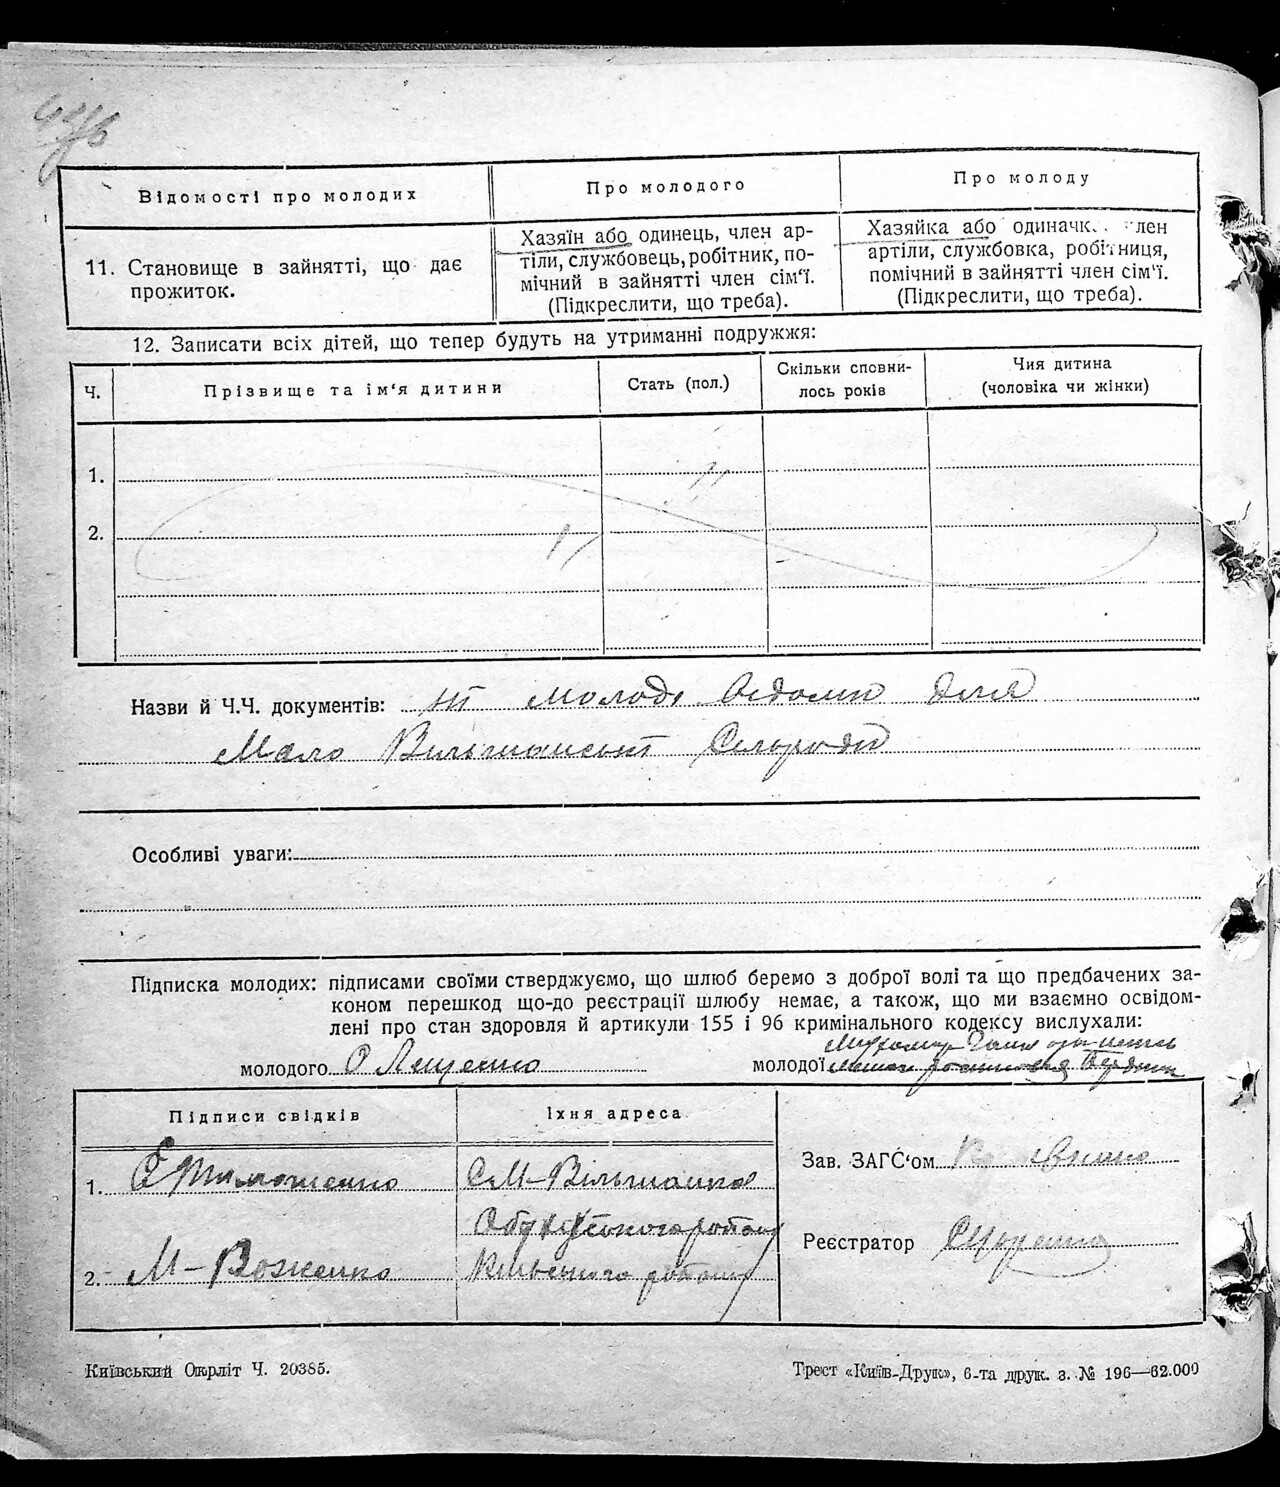 Відомості про молодих
Про молодого
Про молоду
11. Становище в зайнятті, що дає
прожиток.
Хазяїн або одинець, член ар-
тіли, службовець, робітник, по-
мічний в зайнятті член сім'ї.
(Підкреслити, що треба).
Хазяйка або одиначк лен
артіли, службовка, робітниця,
помічний в зайнятті член сім'ї.
(Підкреслити, що треба).
12. Записати всіх дітей, що тепер будуть на утриманні подружжя:
Ч.
Прізвище та ім'я дитини
Стать (пол.)
Скільки сповни-
лось років
Чия дитина
(чоловіка чи жінки)
1.
2.
Назви й Ч.Ч. документів: молоді
Мало Вільшанської Сільради
Особливі уваги:
Підписка молодих: підписами своїми стверджуємо, що шлюб беремо з доброї волі та що предбачених за-
коном перешкод що-до реєстрації шлюбу немає, а також, що ми взаємно освідом-
лені про стан здоровля й артикули 155 і 96 кримінального кодексу вислухали:
молодого О Лещенко
молодої
Підписи свідків
Їхня адреса
1. Тимошенко
С М-Вільшанка
Обухівського району
2. М-Воженко
Київського
Зав. ЗАГС'ом
Реєстратор
Київський Окрліт Ч. 20385.
Трест «Київ-Друк», 6-та друк. з. № 196—62.000